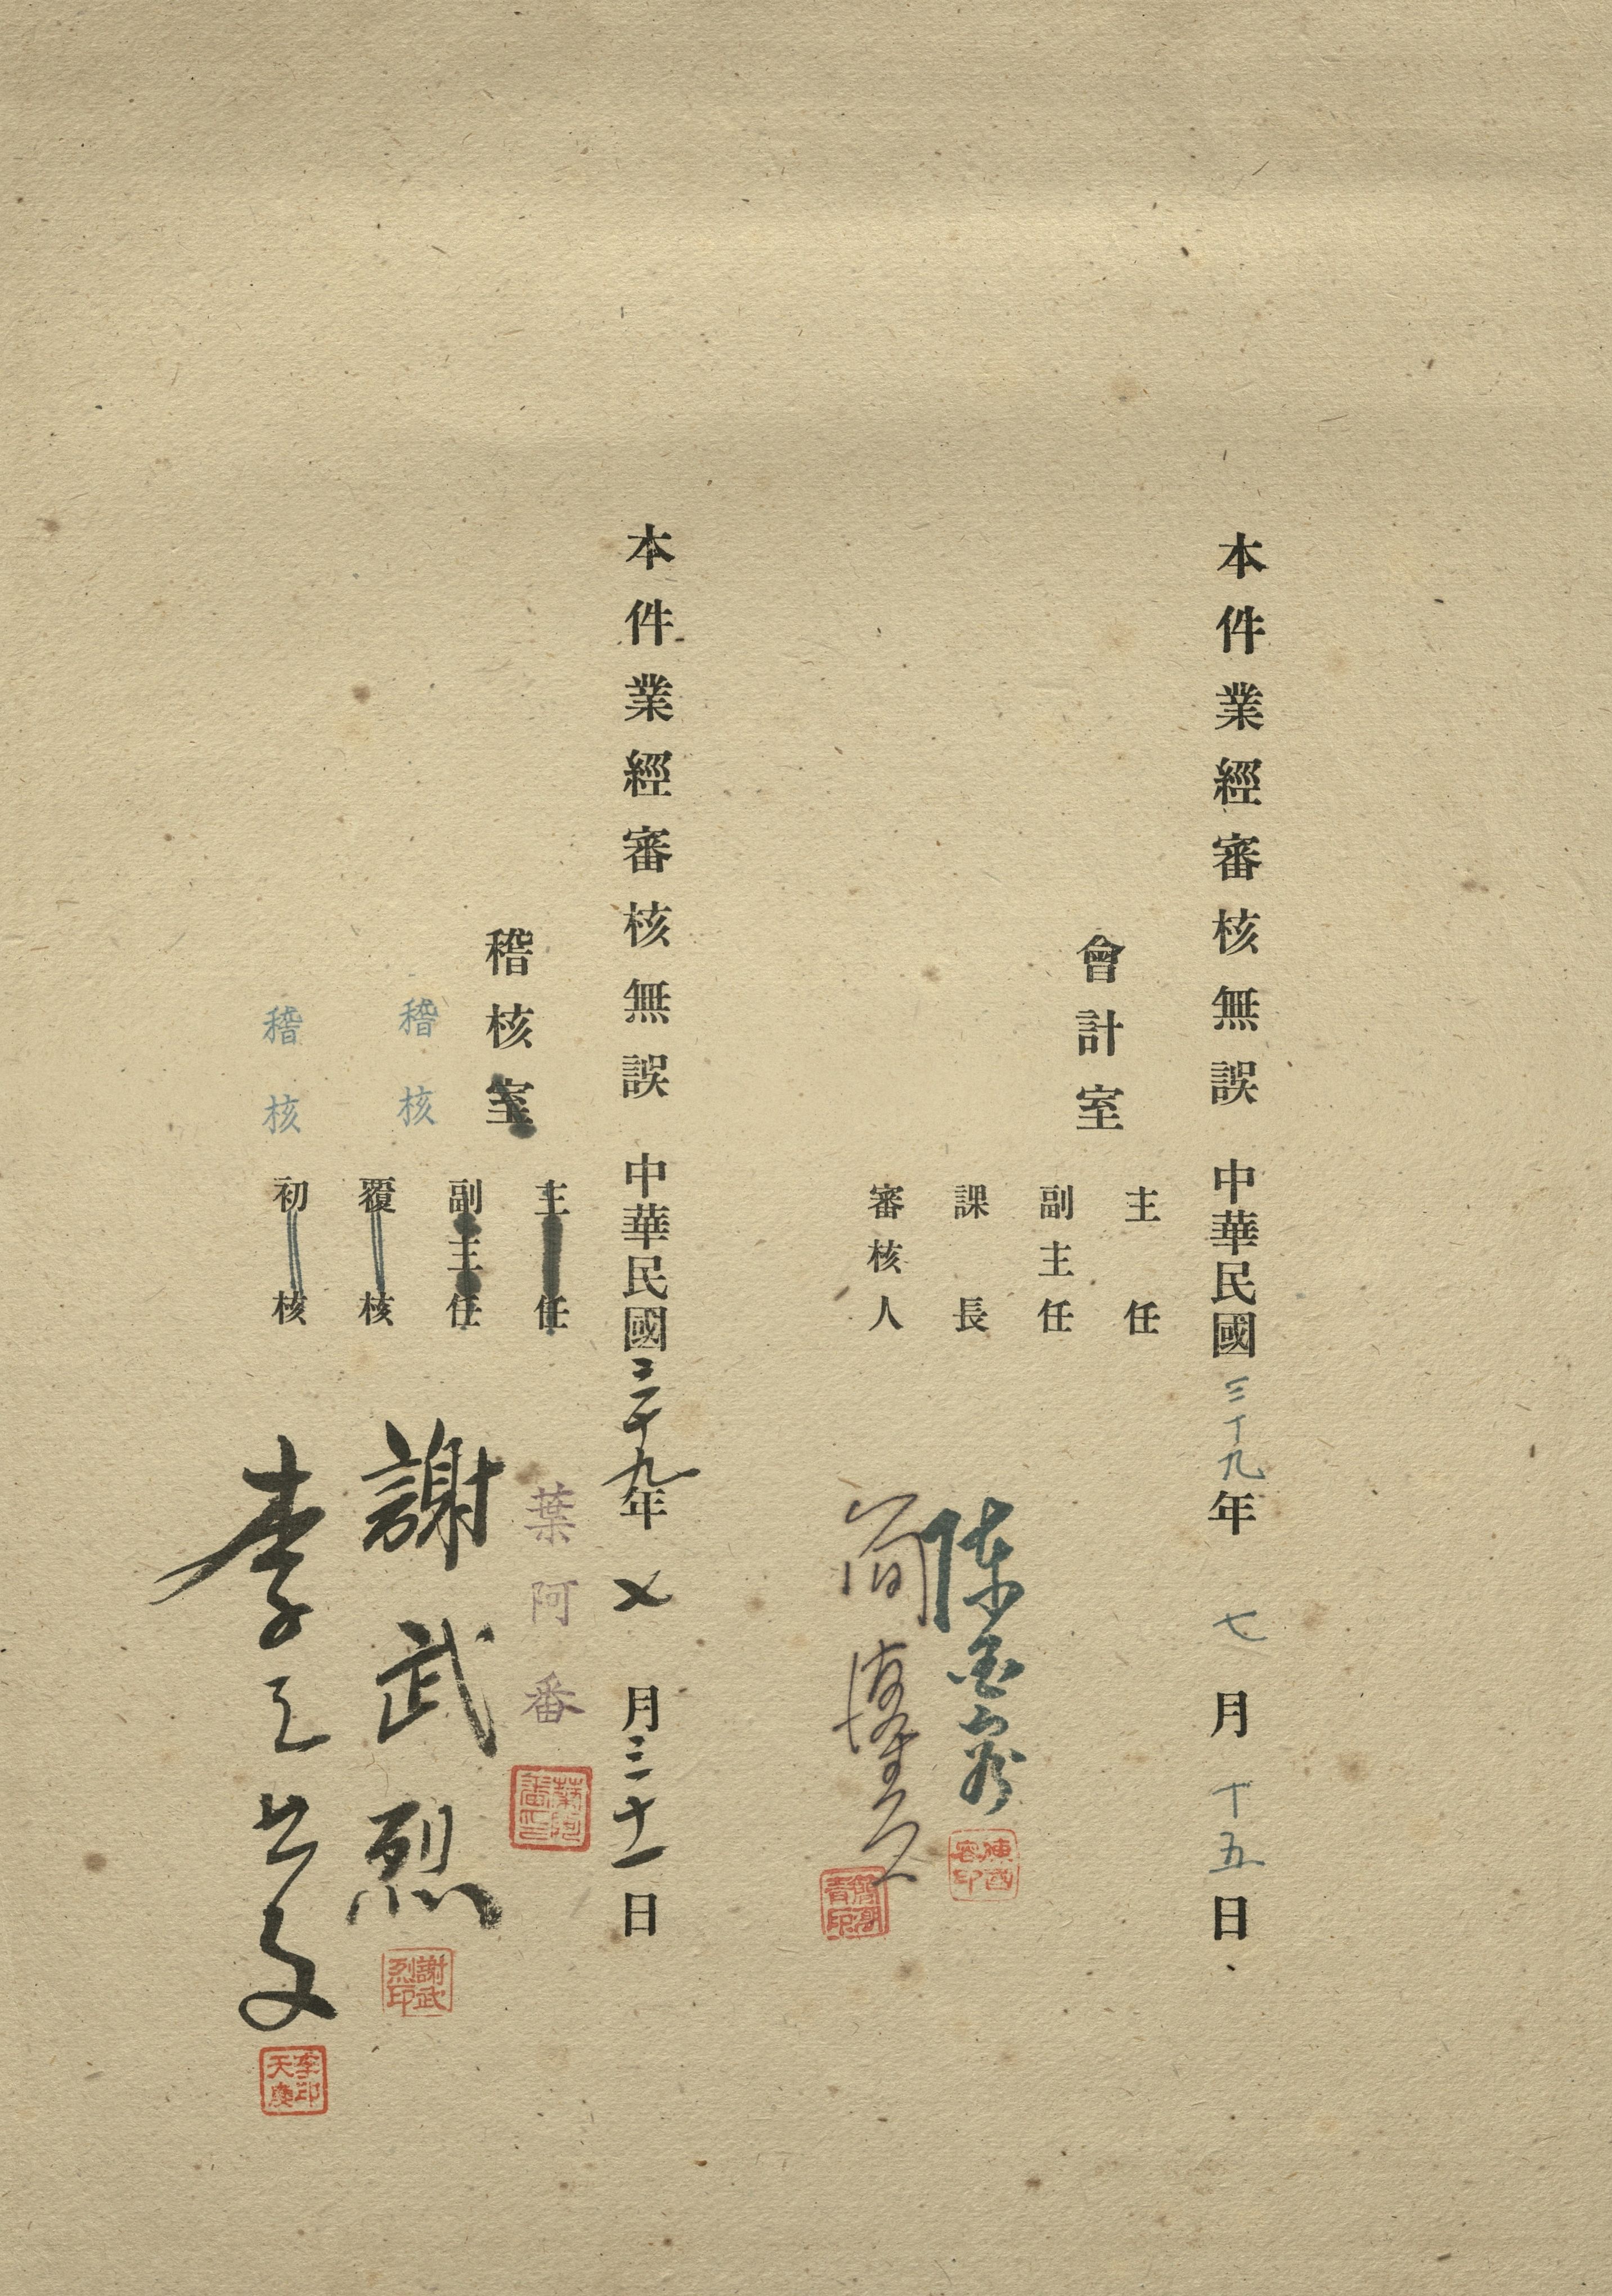 本件業經審核無誤 中華民國三十九年七月十五日
會計室
主任
副主任
課長 陳國容
陳國容印
審核人 簡
本件業經審核無誤 中華民國三十九年七月三十一日
稽核室
主任 葉阿番
葉阿番印
副主任
稽核
覆核 謝武烈
謝武烈印
稽核
初核 李天慶
李印天慶